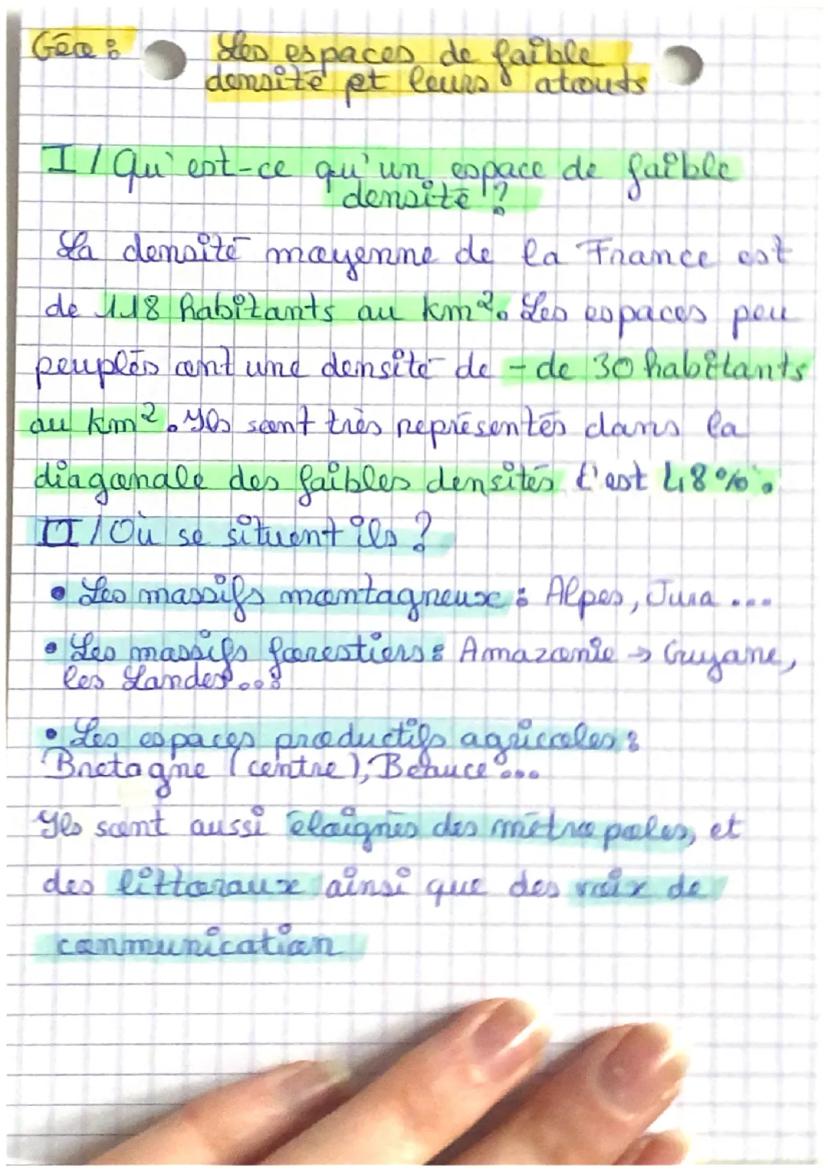 Géo :
Les espaces de faible
densité et leurs atouts
I / Qu'est-ce qu'un espace de faible
densité ?
La densité moyenne de la France est
de 118 habitants au km². Les espaces peu
peuplés ont une densité de - de 30 habitants
au km². Ils sont très représentés dans la
diagonale des faibles densités c'est 48%.
II / Où se situent ils ?
• Les massifs montagneux : Alpes, Jura ...
• Les massifs forestiers : Amazonie → Guyane,
les Landes...
• Les espaces productifs agricoles :
Bretagne (centre), Beauce ...
Ils sont aussi éloignés des métropoles, et
des littoraux ainsi que des voix de
communication